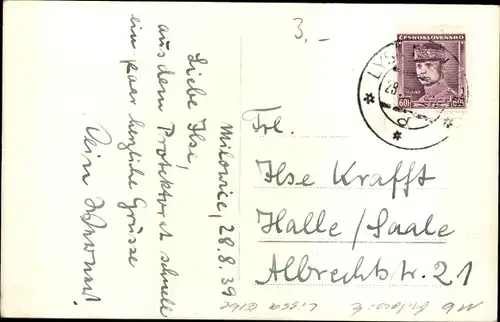 3,-
ČESKOSLOVENSKO
60h
60h
LYS
28
Milowice, 28.8.39
Liebe Ilse,
aus dem Protektorat schnell
ein paar herzliche Grüsse
Dein
Frl.
Ilse Krafft
Halle/Saale
Albrechtstr. 21
Lissa Elbe